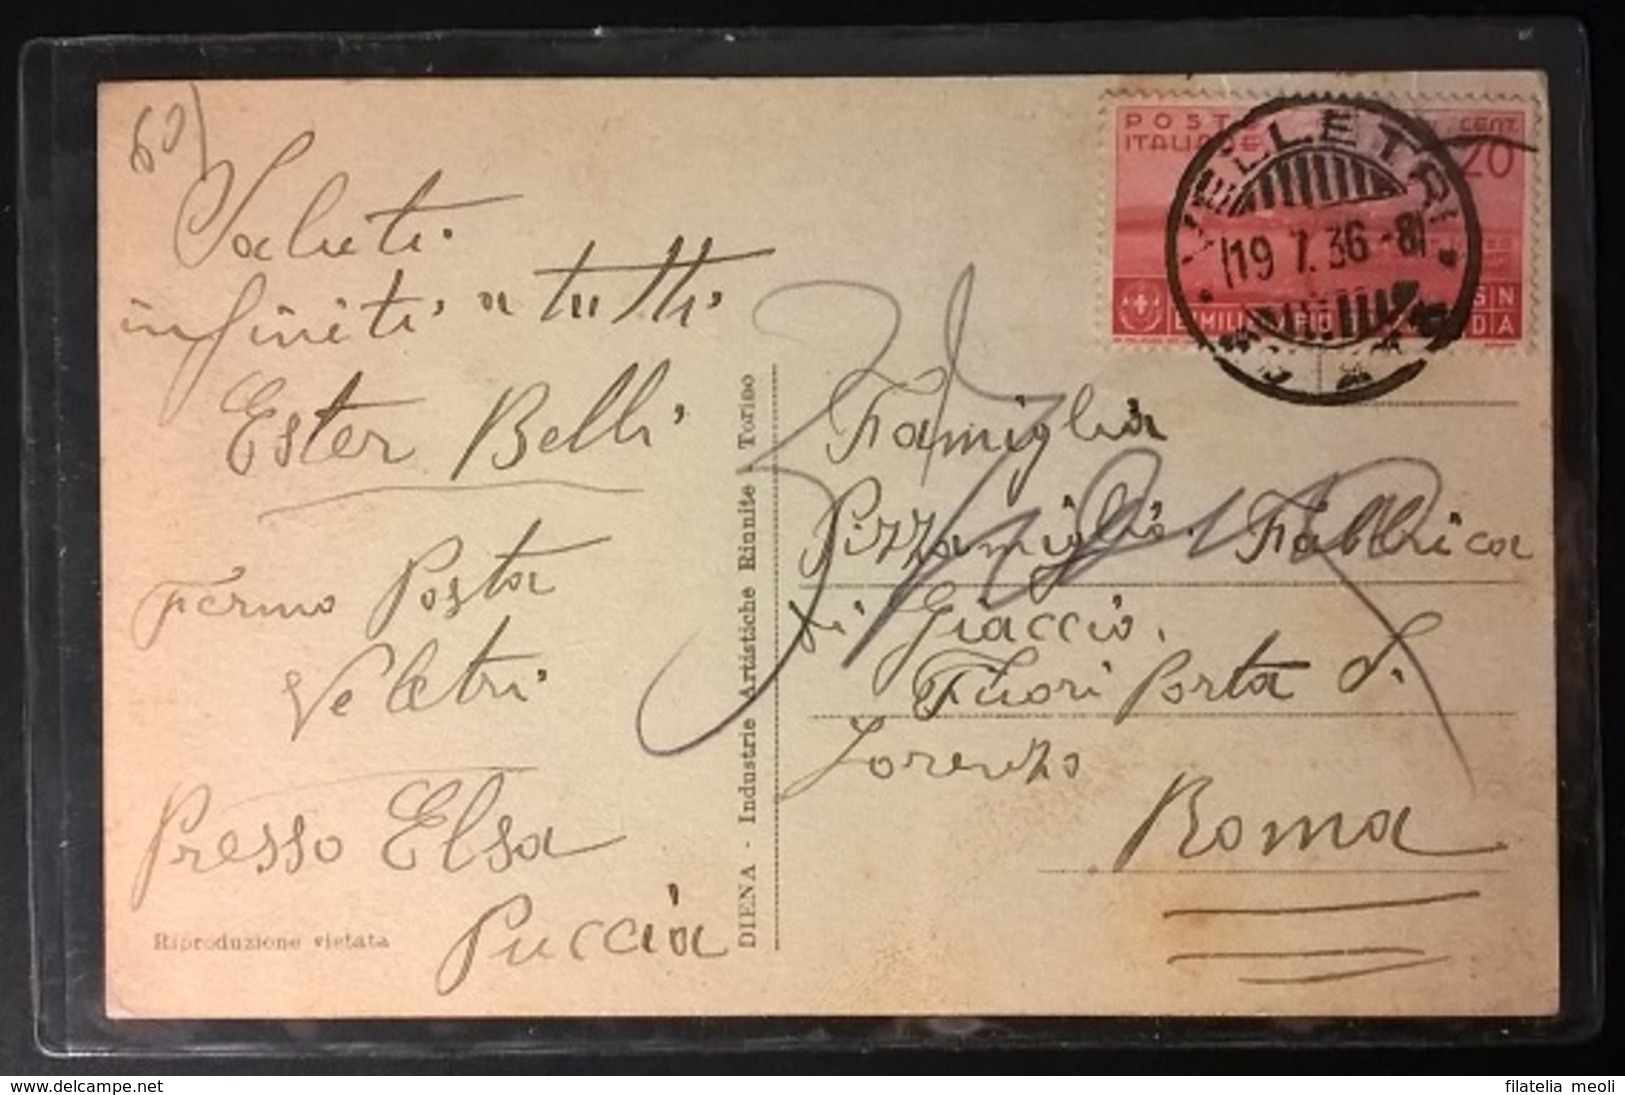 60)
Saluti
infiniti a tutti
Ester Belli
Fermo Posta
Veletri
Presso Elsa
Puccia
Riproduzione vietata
DIENA - Industrie Artistiche Riunite - Torino
POSTE
ITALIANE
CENT.
20
VELLETRI
19 7 36 - 8
BIMILLENARIO
Famiglia
Pizzamiglio. Fabbrica
di Giaccio.
Fuori Porta S.
Lorenzo
Roma
www.delcampe.net
filatelia meoli